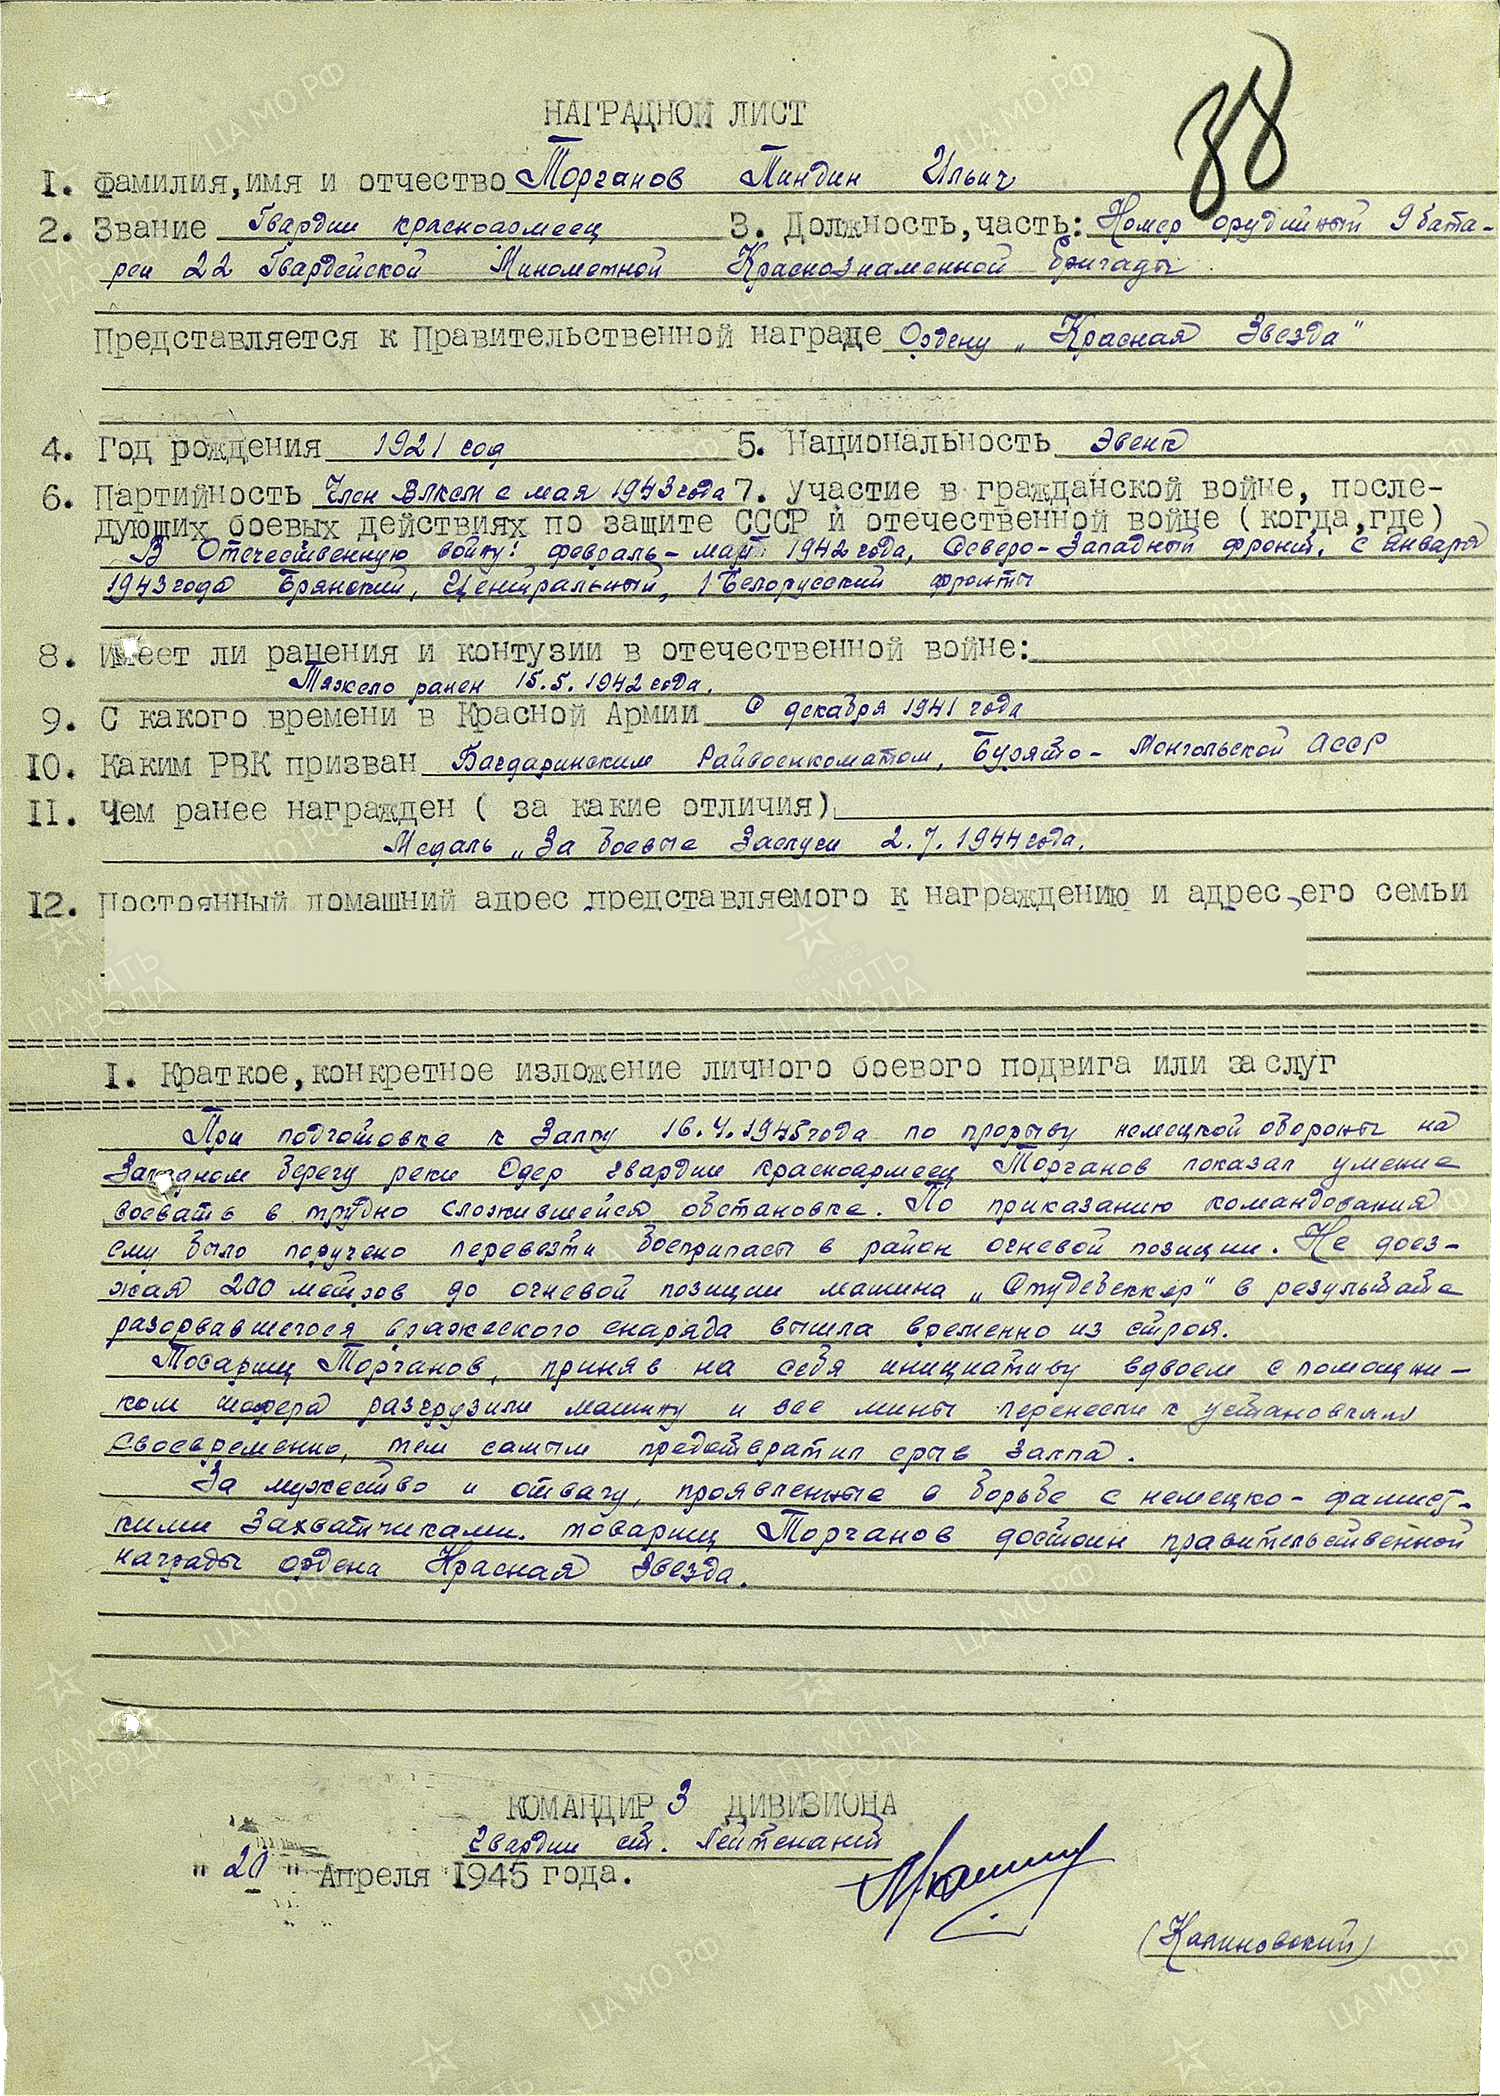 38
НАГРАДНОЙ ЛИСТ
1. Фамилия, имя и отчество Торганов Пиндин Ильич
2. Звание Гвардии красноармеец 3. Должность, часть: Номер орудийный 9 бата-
реи 22 Гвардейской Минометной Краснознаменной бригады
Представляется к Правительственной награде Ордену „Красная Звезда"
4. Год рождения 1921 год 5. Национальность Эвенк
6. Партийность Член ВЛКСМ с мая 1943 года 7. Участие в гражданской войне, после-
дующих боевых действиях по защите СССР и отечественной войне (когда, где)
В Отечественную войну: февраль-март 1942 года, Северо-Западный фронт, с Января
1943 года Брянский, Центральный, 1 Белорусский фронты
8. Имеет ли ранения и контузии в отечественной войне:
Тяжело ранен 15.5.1942 года.
9. С какого времени в Красной Армии С декабря 1941 года
10. Каким РВК призван Багдаринским Райвоенкоматом, Бурято-Монгольской АССР
11. Чем ранее награжден ( за какие отличия)
Медаль „За боевые Заслуги 2.7.1944 года.
12. Постоянный домашний адрес представляемого к награждению и адрес его семьи
1. Краткое, конкретное изложение личного боевого подвига или заслуг
При подготовке к Залпу 16.4.1945 года по прорыву немецкой обороны на
Западном берегу реки Одер гвардии красноармеец Торганов показал умение
воевать в трудно сложившейся обстановке. По приказанию командования
ему было поручено перевезти боеприпасы в район огневой позиции. Не доез-
жая 200 метров до огневой позиции машина „Студебеккер" в результате
разорвавшегося вражеского снаряда вышла временно из строя.
Товарищ Торганов, приняв на себя инициативу вдвоем с помощни-
ком шофера разгрузили машину и все мины перенесли к установкам
своевременно, тем самым предотвратил срыв Залпа.
За мужество и отвагу, проявленные в борьбе с немецко-фашист-
кими Захватчиками. товарищ Торганов достоин правительственной
награды ордена Красная Звезда.
КОМАНДИР 3 ДИВИЗИОНА
гвардии ст. Лейтенант
" 20 " Апреля 1945 года.
(Калиновский)